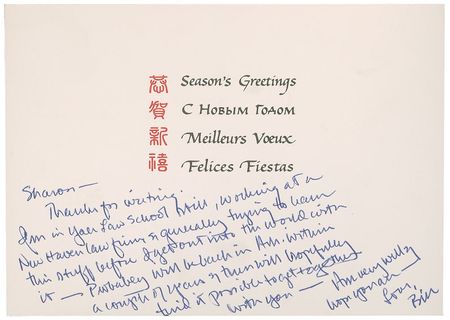 恭賀新禧
Season's Greetings
С Новым Годом
Meilleurs Vœux
Felices Fiestas
Sharon —
Thanks for writing.
I'm in Yale Law School still, working at a
New Haven law firm & generally trying to learn
this stuff before I get out into the world with
it — Probably will be back in Ark. within
a couple of years & then will hopefully
find it possible to get together
with you — Am very well &
hope you are —
Love,
Bill